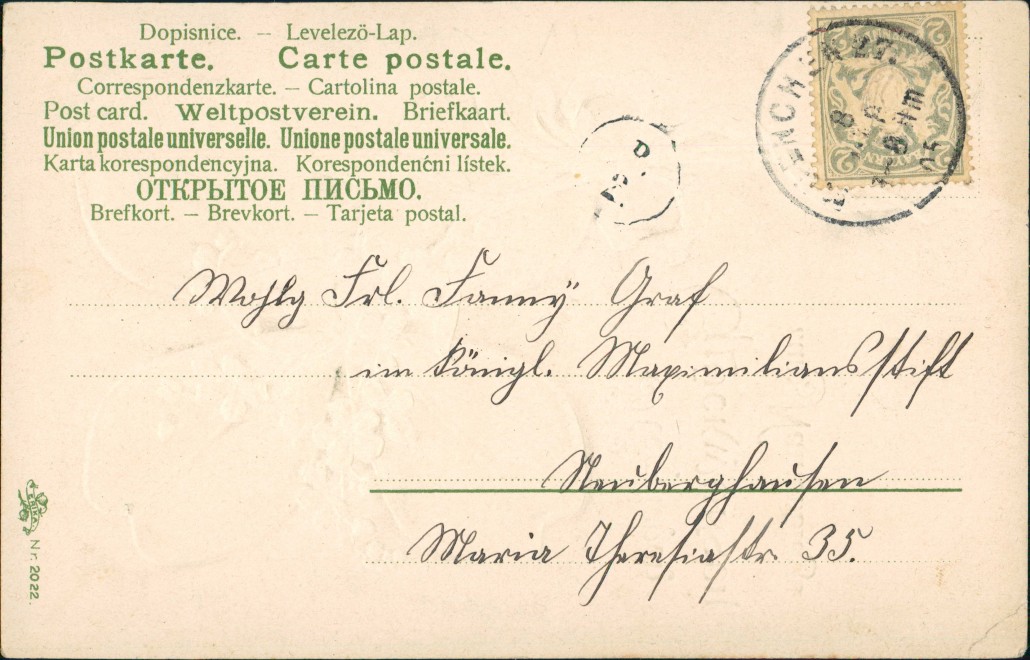 Dopisnice. – Levelezö-Lap.
Postkarte. Carte postale.
Correspondenzkarte. – Cartolina postale.
Post card. Weltpostverein. Briefkaart.
Union postale universelle. Unione postale universale.
Karta korespondencyjna. Korespondenčni listek.
ОТКРЫТОЕ ПИСЬМО.
Brefkort. – Brevkort. – Tarjeta postal.
2 2
MUENCHEN 27.
8
7–8 Nm
05
Wohlg Frl. Fanny Graf
im königl. Maximiliansstift
Neuberghausen
Maria Theresiastr. 35.
ERIKA
Nr. 2022.